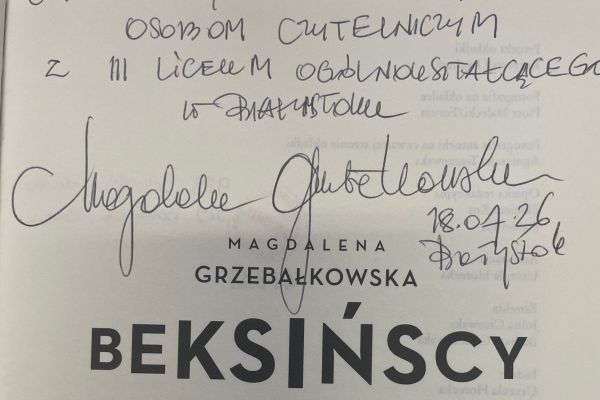 OSOBOM CZYTELNICZYM
Z III LICEUM OGÓLNOKSZTAŁCĄCEGO
W BIAŁYMSTOKU
Magdalena Grzebałkowska
18.04.26
Białystok
MAGDALENA
GRZEBAŁKOWSKA
BEKSIŃSCY